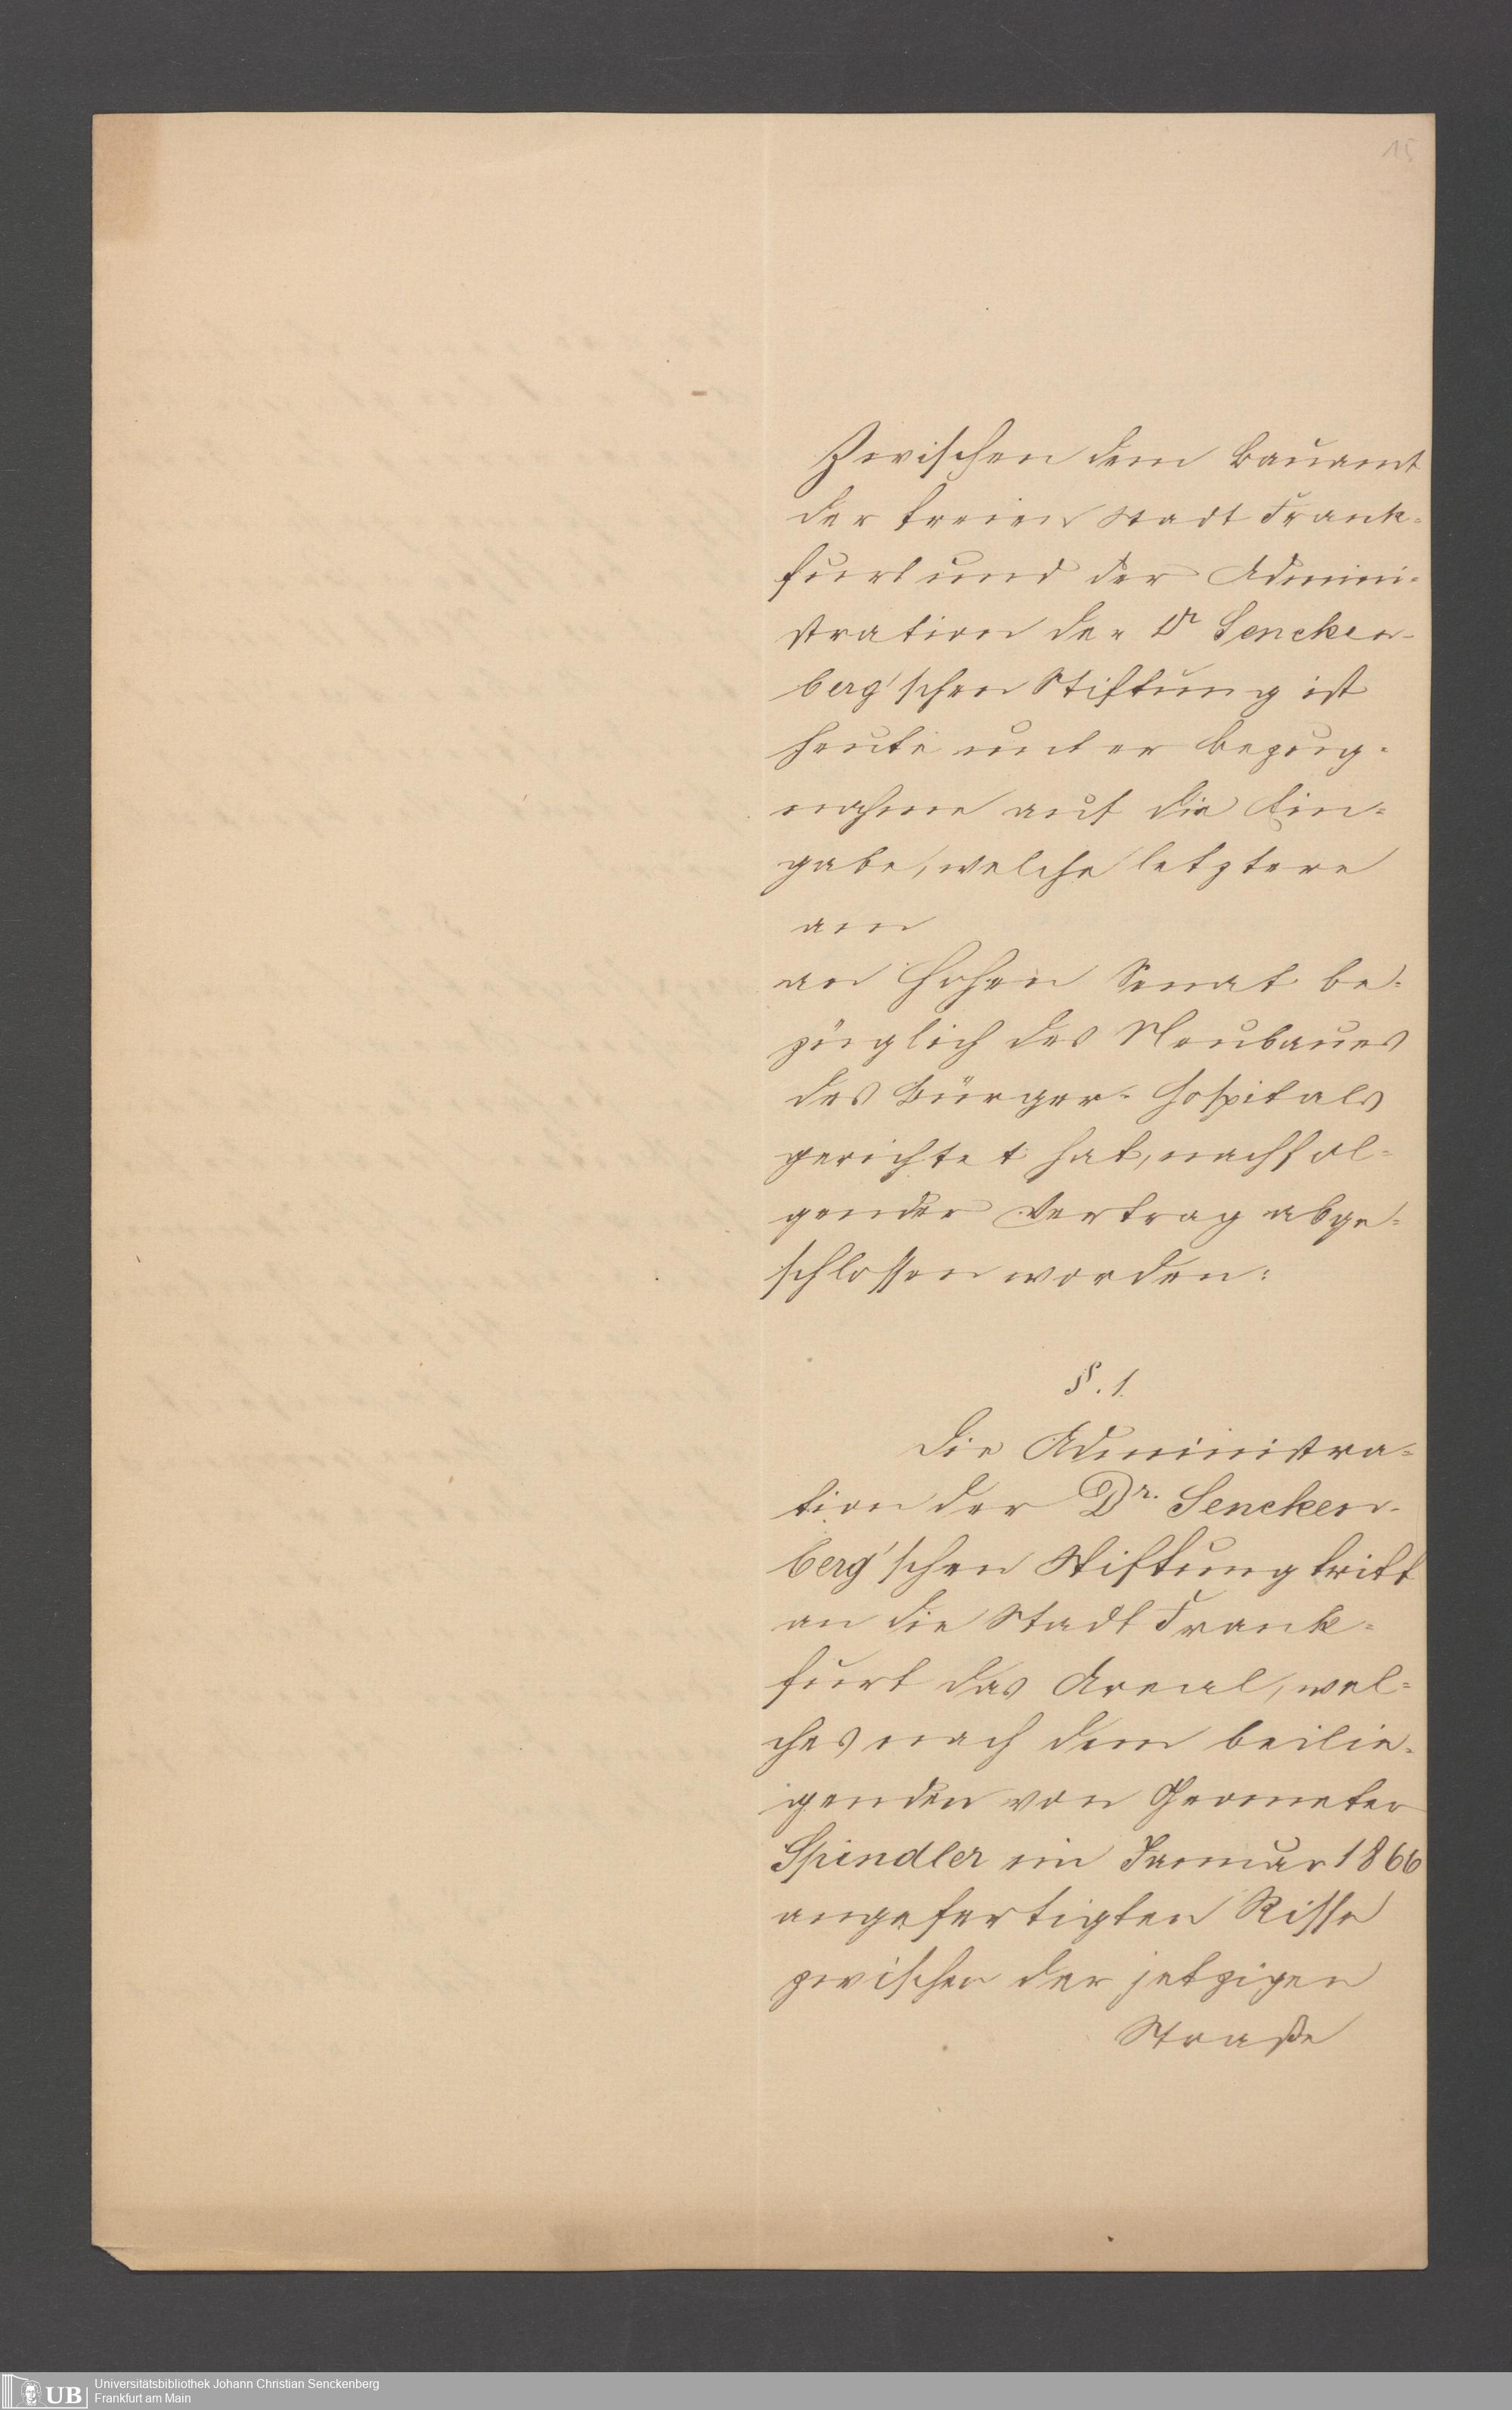 15
Zwischen dem Bauamt
der freien Stadt Frank-
furt und der Admini-
stration der Dr Sencken-
berg'schen Stiftung ist
heute unter Bezug-
nahme auf die Ein-
gabe, welche letztere
am
an Hohen Senat be-
züglich des Neubaues
des Bürger-Hospitals
gerichtet hat, nachfol-
gender Vertrag abge-
schlossen worden:
§. 1.
Die Administra-
tion der Dr. Sencken-
berg'schen Stiftung tritt
an die Stadt Frank-
furt das Areal, wel-
ches nach dem beilie-
genden von Geometer
Spindler im Januar 1866
angefertigten Risse
zwischen der jetzigen
Straße
UB
Universitätsbibliothek Johann Christian Senckenberg
Frankfurt am Main